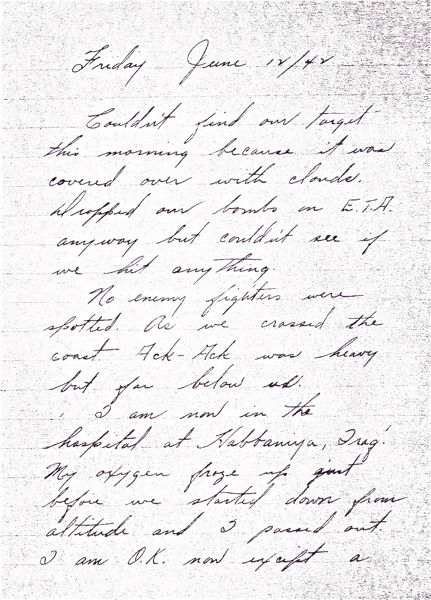 Friday June 12/42
Couldn't find our target
this morning because it was
covered over with clouds.
Dropped our bombs on E.T.A.
anyway but couldn't see if
we hit anything.
No enemy fighters were
spotted. As we crossed the
coast Ack-Ack was heavy
but far below us.
I am now in the
hospital at Habbaniya, Iraq.
My oxygen froze up just
before we started down from
altitude and I passed out.
I am O.K. now except a